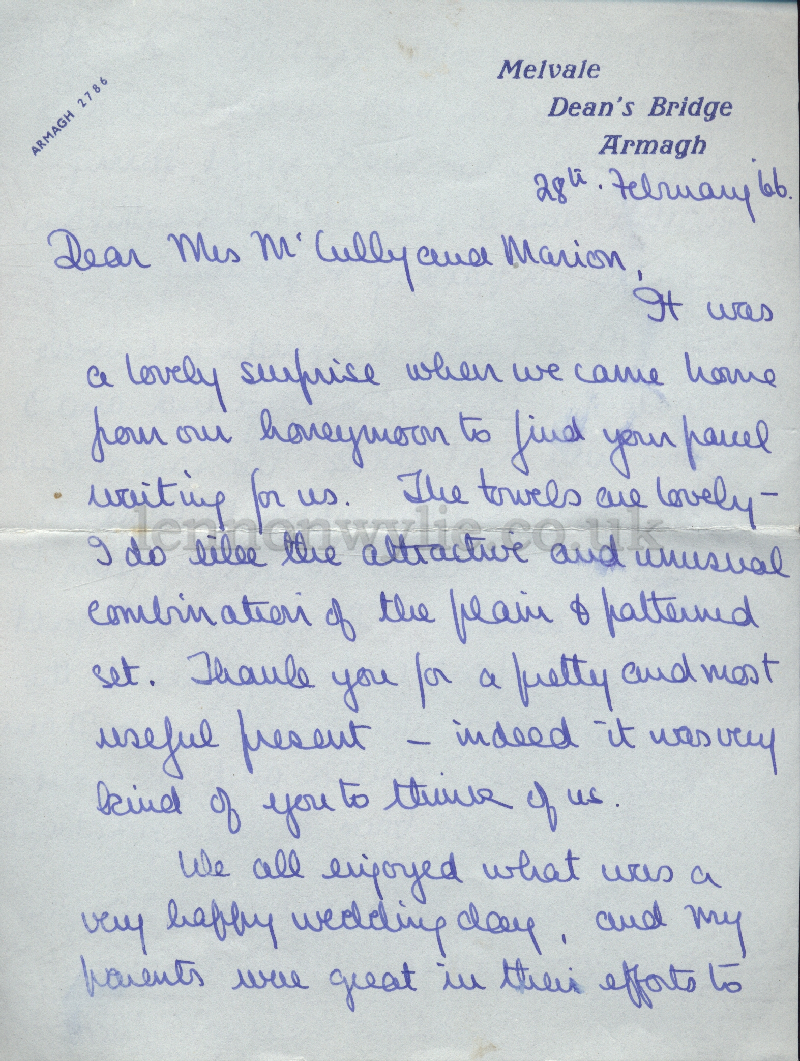 ARMAGH 2786
Melvale
Dean's Bridge
Armagh
28th. February '66.
Dear Mrs McCully and Marion,
It was
a lovely surprise when we came home
from our honeymoon to find your parcel
waiting for us. The towels are lovely –
lennonwylie.co.uk
I do like the attractive and unusual
combination of the plain & patterned
set. Thank you for a pretty and most
useful present – indeed it was very
kind of you to think of us.
We all enjoyed what was a
very happy wedding day, and my
parents were great in their efforts to